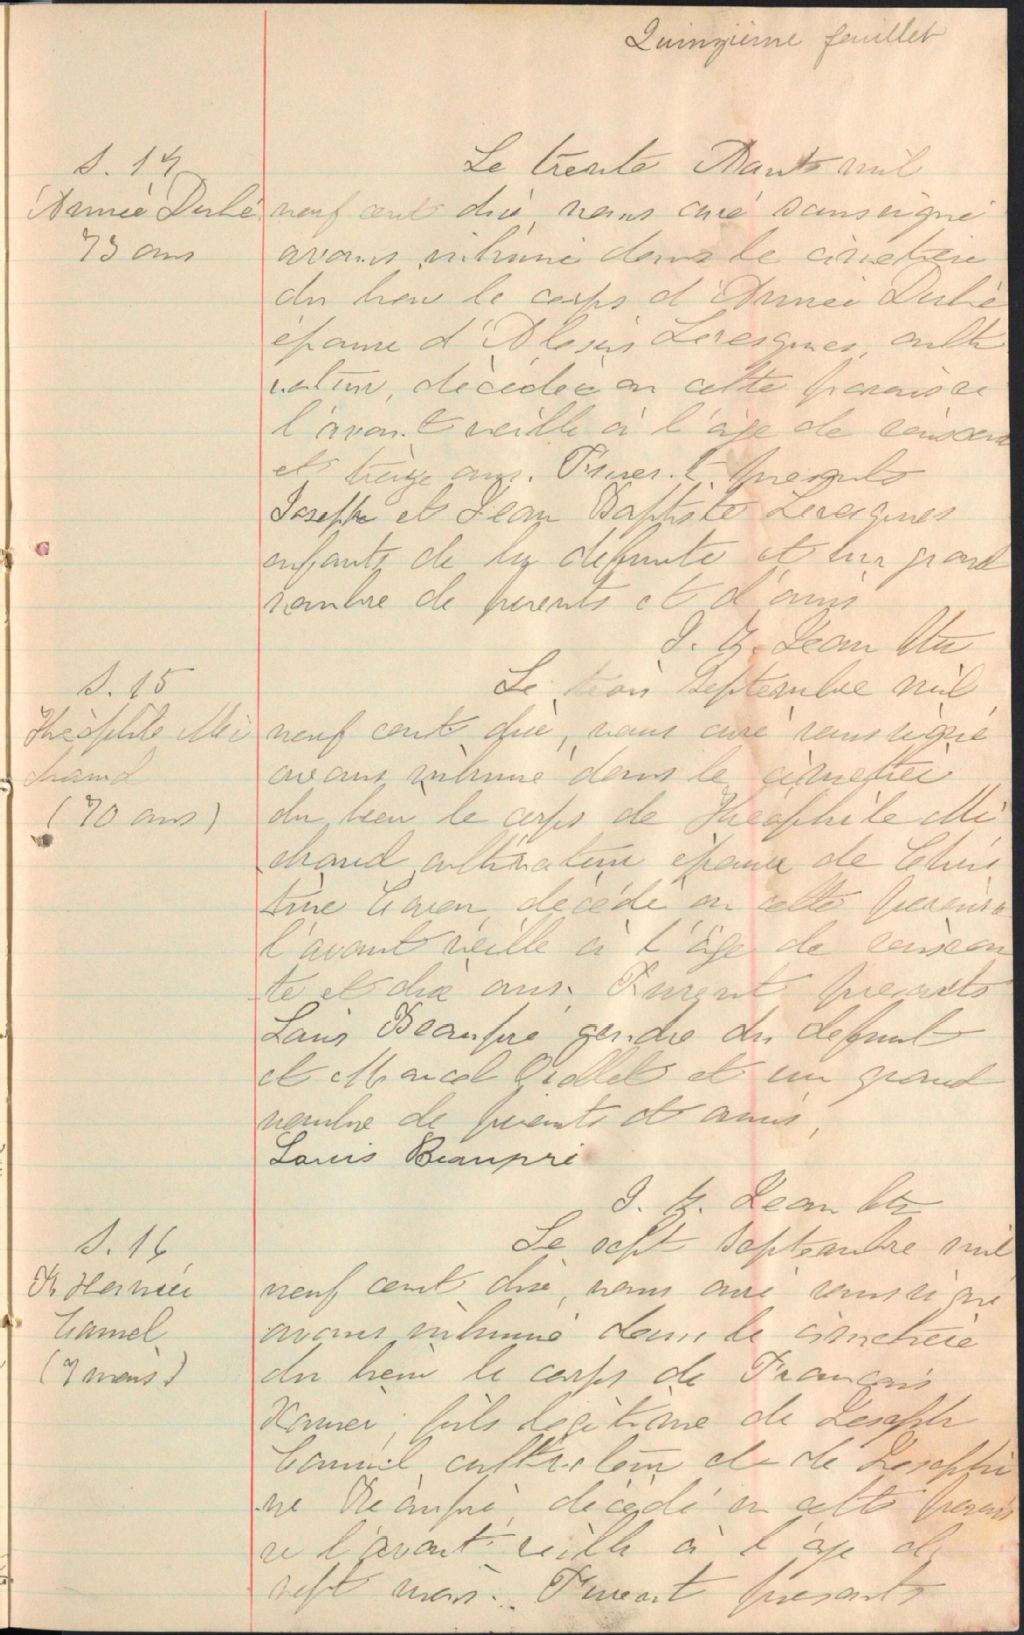 Quinzième feuillet
S. 14
Le trente Août mil
Dubé
neuf cent dix, nous curé soussigné
73 ans
avons inhumé dans le cimetière
du lieu le corps d' Dubé
épouse d'Alexis Levesques, culti
vateur, décédée en cette paroisse
l'avant veille à l'âge de soixante
et treize ans. Furent présents
Joseph et Jean Baptiste Levesques
enfants de la defunte et un grand
nombre de parents et d'amis
Jean Ptre
S. 15
Le trois Septembre mil
Théophile Mi
chaud
(70 ans)
neuf cent dix, nous curé soussigné
avons inhumé dans le cimetière
du lieu le corps de Théophile Mi
chaud cultivateur époux de Chris
tine décédé en cette paroisse
l'avant veille à l'âge de soixan
te et dix ans. Furent présents
Louis Beaupré gendre du defunt
et Marcel Ouellet et un grand
nombre de parents et amis,
Louis Beaupré
Jean Ptre
S. 16
Le sept Septembre mil
Frs Xavier
Camel
(7 mois)
neuf cent dix, nous curé soussigné
avons inhumé dans le cimetière
du lieu le corps de François
Xavier, fils légitime de Joseph
cultivateur et de Josephi
ne Beaupré, décédé en cette parois
se l'avant veille à l'âge de
sept mois. Furent présents